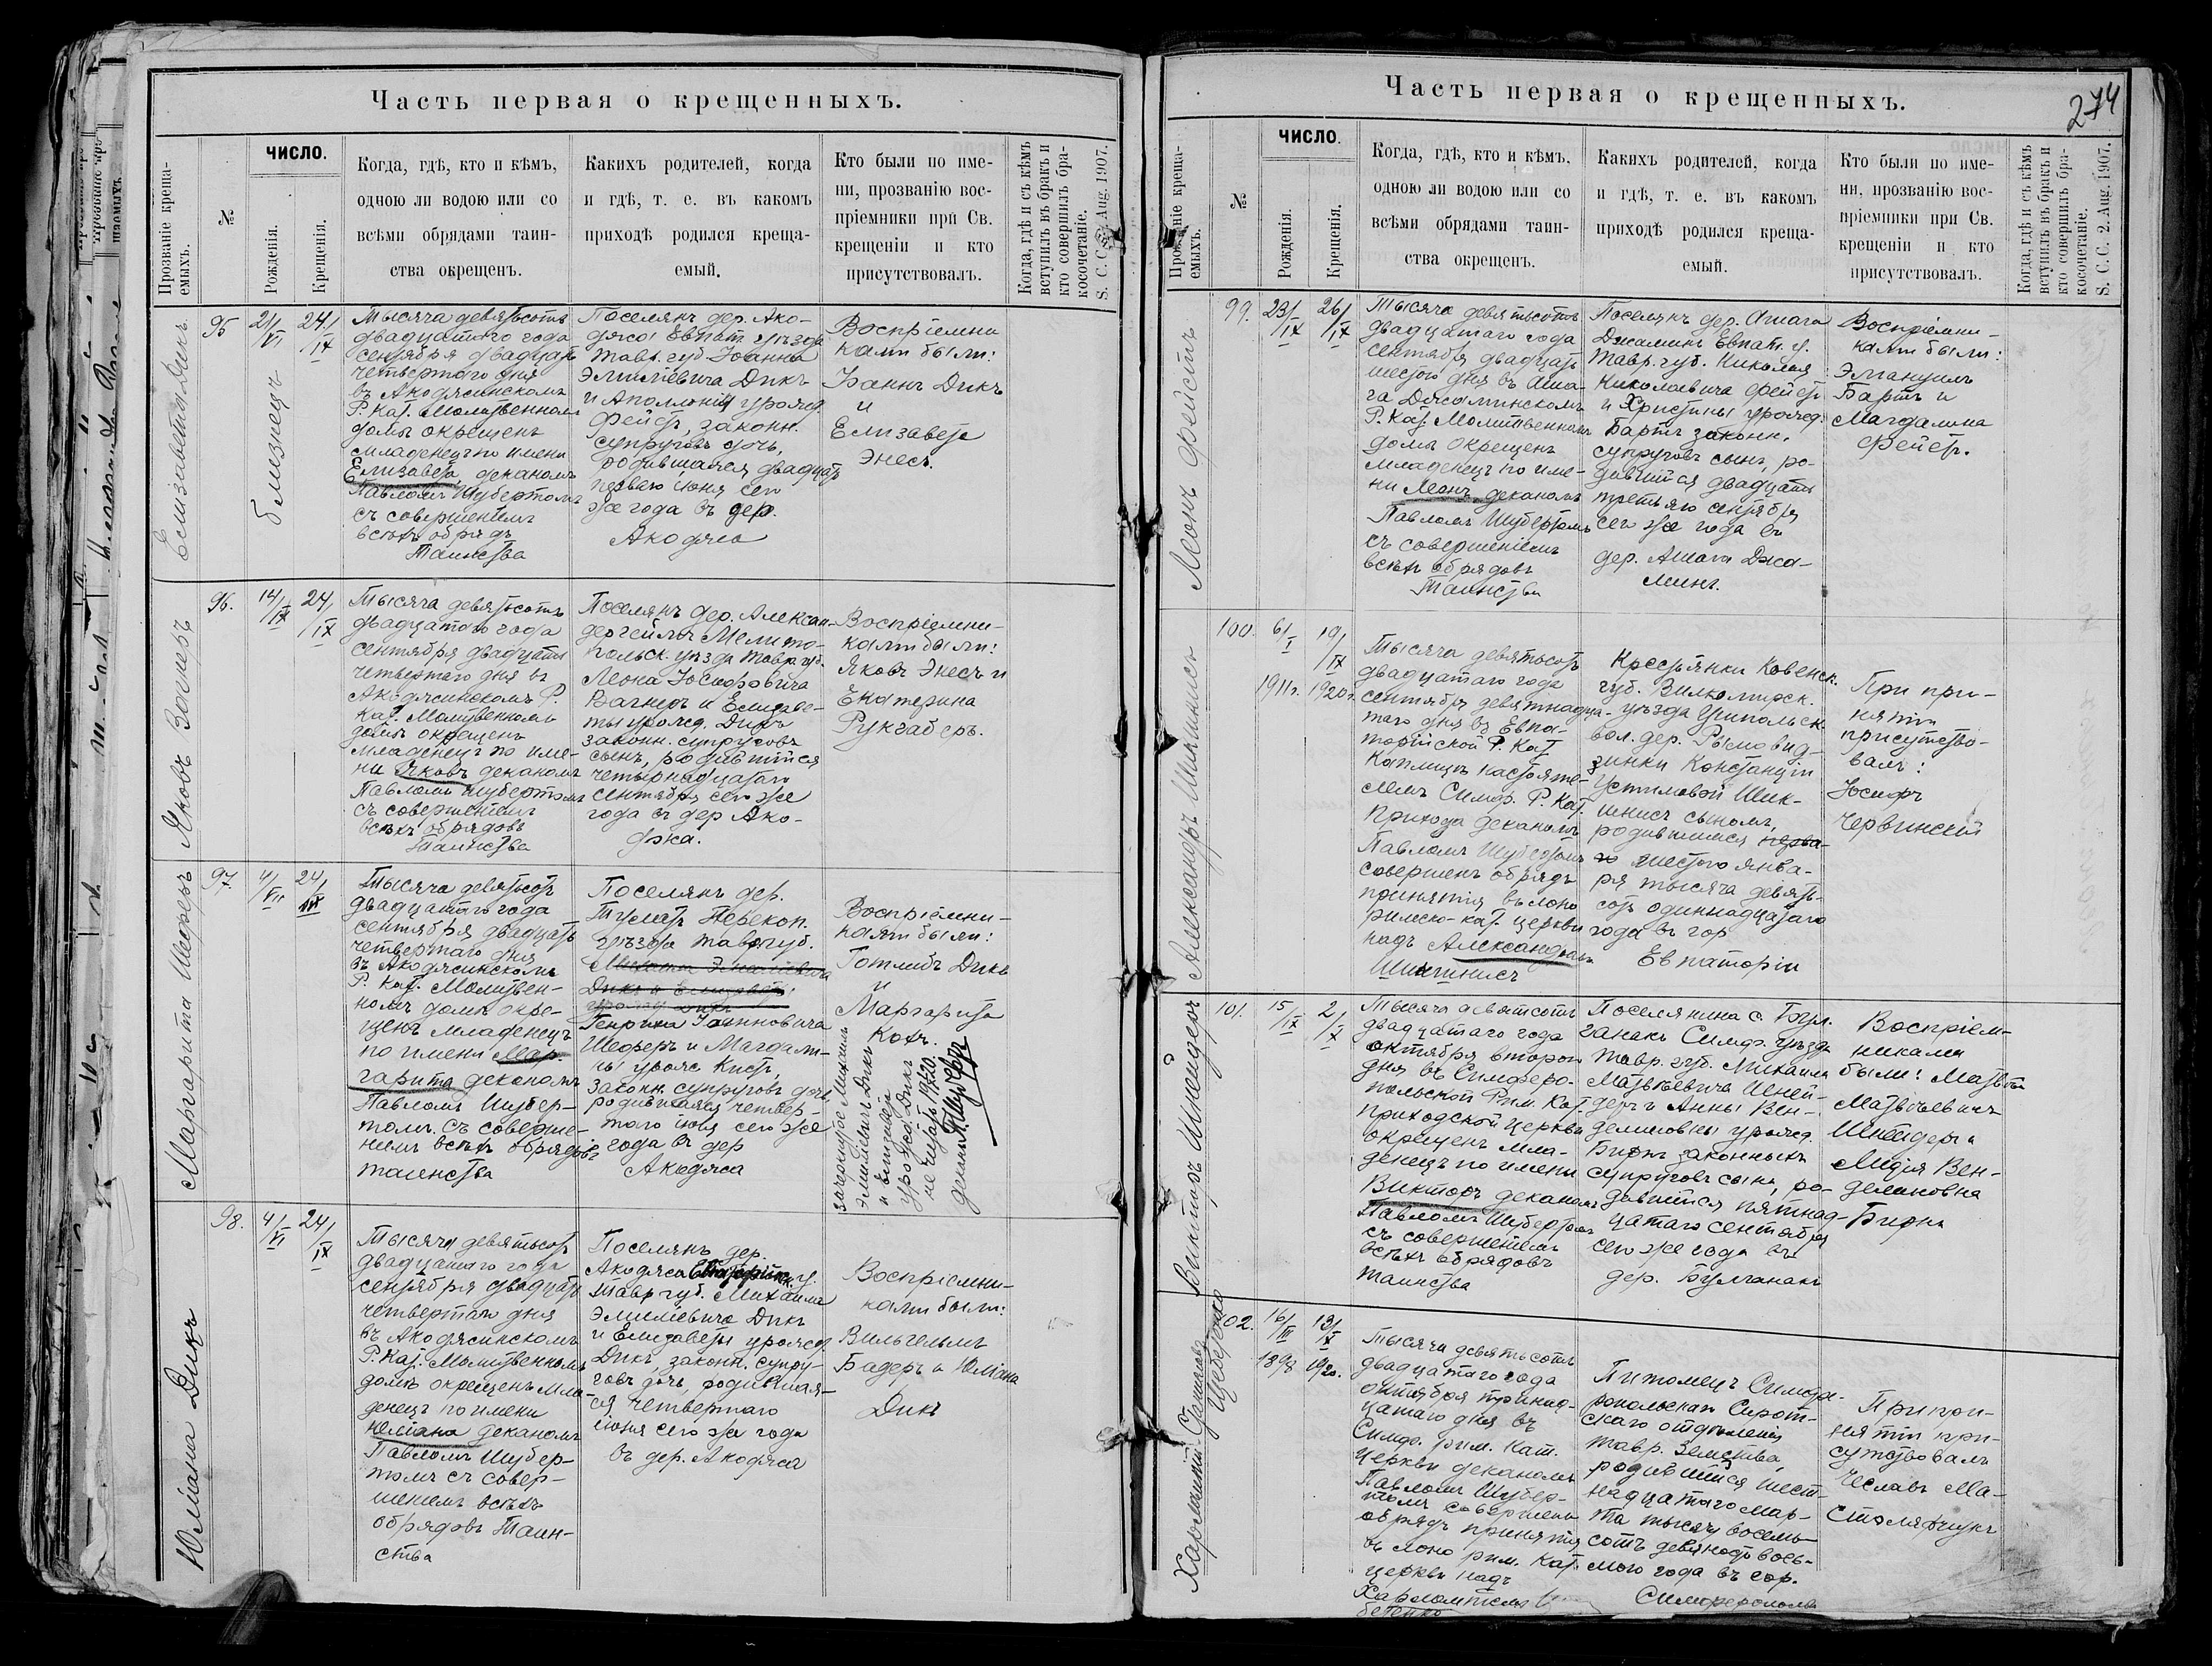 Часть первая о крещенныхъ.
Прозваніе креща-
емыхъ.
№
ЧИСЛО.
Рожденія.
Крещенія.
Когда, гдѣ, кто и кѣмъ,
одною ли водою или со
всѣми обрядами таин-
ства окрещенъ.
Какихъ родителей, когда
и гдѣ, т. е. въ какомъ
приходѣ родился креща-
емый.
Кто были по име-
ни, прозванію вос-
пріемники при Св.
крещеніи и кто
присутствовалъ.
Когда, гдѣ и съ кѣмъ
вступилъ въ бракъ и
кто совершилъ бра-
косочетаніе.
S. C. C. 2. Aug. 1907.
Елизавета Дикъ
близнецъ
95
21/VI
24/IX
Тысяча девятьсотъ
двадцатого года
сентября двадцать
четвертаго дня
въ Акоджинскомъ
Р. Кат. Молитвенномъ
домѣ окрещенъ
младенецъ по имени
Елизавета, деканомъ
Павломъ Шубертомъ
съ совершеніемъ
всѣхъ обрядъ
Таинства
Поселянъ дер. Ако-
джа Евпат. уѣзда
Тавр. губ. Іоанна
Эмиліевича Дикъ
и Аполлоніи урожд.
Фейстъ, законн.
супруговъ дочь,
родившаяся двадцать
перваго іюня сего
же года въ дер.
Акоджа
Воспріемни
ками были:
Іоаннъ Дикъ
и
Елизавета
Энесъ.
Яковъ Вагнеръ
96.
14/IX
24/IX
Тысяча девятьсотъ
двадцатого года
сентября двадцать
четвертаго дня въ
Акоджинскомъ Р.
Кат. Молитвенномъ
домѣ окрещенъ
младенецъ по име-
ни Яковъ деканомъ
Павломъ Шубертомъ
съ совершеніемъ
всѣхъ обрядовъ
Таинства
Поселянъ дер. Алексан-
дергеймъ Мелито-
польск. уѣзда Тавр. губ.
Леона Іосифовича
Вагнеръ и Елизаве-
ты урожд. Дикъ
законн. супруговъ
сынъ, родившійся
четырнадцатаго
сентября сего же
года въ дер Ако-
джа.
Воспріемни-
ками были:
Яковъ Энесъ и
Екатерина
Рукгаберъ.
Маргарита Шеферъ
97
4/VII
24/IX
Тысяча девятьсотъ
двадцатого года
сентября двадцать
четвертаго дня
въ Акоджинскомъ
Р. Кат. Молитвен-
номъ домѣ окре-
щенъ младенецъ
по имени Мар-
гарита деканомъ
Павломъ Шубер-
томъ съ соверше-
ніемъ всѣхъ обрядовъ
таинства
Поселянъ дер.
Перекоп.
уѣзда Тавр губ.
Михаила Эмиліевича
Дикъ и Елизаветы
урожд Дикъ
Генриха Іоанновича
Шеферъ и Магдали-
ны урожд Кистъ,
законн. супруговъ дочь
родившаяся четвер-
таго іюля сего же
года въ дер
Акоджа
Воспріемни-
ками были:
Готлибъ Дикъ
и
Маргарита
Кохъ.
Зачеркнутое Михаилъ
Эмиліевичъ Дикъ
и Елизавета
урожд. Дикъ
не читать 1920.
деканъ П. Шубертъ
Юліана Дикъ
98.
4/VI
24/IX
Тысяча девятьсотъ
двадцатого года
сентября двадцать
четвертаго дня
въ Акоджинскомъ
Р. Кат. Молитвенномъ
домѣ окрещенъ мла-
денецъ по имени
Юліана деканомъ
Павломъ Шубер-
томъ съ совер-
шеніемъ всѣхъ
обрядовъ Таин-
ства
Поселянъ дер.
Акоджа у.
Тавр губ. Михаила
Эмиліевича Дикъ
и Елизаветы урожд
Дикъ, законн. супру-
говъ дочь, родившая-
ся четвертаго
іюня сего же года
въ дер. Акоджа
Воспріемни-
ками были:
Вильгельмъ
Бадеръ и Юліана
Дикъ
Часть первая о крещенныхъ.
274
Прозваніе креща-
емыхъ.
№
ЧИСЛО.
Рожденія.
Крещенія.
Когда, гдѣ, кто и кѣмъ,
одною ли водою или со
всѣми обрядами таин-
ства окрещенъ.
Какихъ родителей, когда
и гдѣ, т. е. въ какомъ
приходѣ родился креща-
емый.
Кто были по име-
ни, прозванію вос-
пріемники при Св.
крещеніи и кто
присутствовалъ.
Когда, гдѣ и съ кѣмъ
вступилъ въ бракъ и
кто совершилъ бра-
косочетаніе.
S. C. C. 2. Aug. 1907.
Леонъ Фейстъ
99.
23/IX
26/IX
Тысяча девятьсотъ
двадцатаго года
сентября двадцать
шестого дня въ Аша-
га Джаминскомъ
Р. Кат. Молитвенномъ
домѣ окрещенъ
младенецъ по име-
ни Леонъ деканомъ
Павломъ Шубертомъ
съ совершеніемъ
всѣхъ обрядовъ
Таинства
Поселянъ дер. Ашага
Джаминъ Евпат. у.
Тавр. губ. Николая
Николаевича Фейстъ
и Христины урожд.
Бартъ законн.
супруговъ сынъ, ро-
дившійся двадцать
третьяго сентября
сего же года въ
дер. Ашага Джа-
минъ.
Воспріемни-
ками были:
Эмануилъ
Бартъ и
Магдалина
Фейстъ.
Александръ Шикшнисъ
100.
6/I
1911 г.
19/IX
1920 г.
Тысяча девятьсотъ
двадцатаго года
сентября девятнадца-
таго дня въ Евпа-
торійской Р. Кат
Каплицѣ настояте-
лемъ Симф. Р. Кат.
Прихода деканомъ
Павломъ Шубертомъ
совершенъ обрядъ
принятія въ лоно
римско-кат. церкви
надъ Александромъ
Шикшнисъ
Крестьянки Ковенск.
губ. Вилкомирск.
уѣзда
вол. дер.
зинки Констанціи
Устимовой Шик-
шнисъ сыномъ,
родившимся перва-
го шестого янва-
ря тысяча девять-
сотъ одиннадцатаго
года въ гор
Евпаторіи
При при-
нятіи
присутство-
валъ:
Іосифъ
Червинскій
Викторъ Шнейдеръ
101.
15/IX
2/X
Тысяча девятьсотъ
двадцатаго года
октября второго
дня въ Симферо-
польской Рим. Кат.
приходской церкви
окрещенъ мла-
денецъ по имени
Викторъ деканомъ
Павломъ Шубертомъ
съ совершеніемъ
всѣхъ обрядовъ
таинства
Поселянина с. Бул-
ганакъ Симф. уѣзда
Тавр. губ. Михаила
Матвѣевича Шней-
деръ и Анны Вен-
делиновны урожд.
Бирнъ законныхъ
супруговъ сынъ, ро-
дившійся пятнад-
цатаго сентября
сего же года въ
дер. Булганакъ
Воспріем-
никами
были: Матвѣй
Матвѣевичъ
Шнейдеръ и
Лидія Вен-
делиновна
Бирнъ
102.
16/III
1898
13/X
1920.
Тысяча девятьсотъ
двадцатаго года
октября тринад-
цатаго дня въ
Симф. рим. Кат.
церкви деканомъ
Павломъ Шубер-
томъ совершенъ
обрядъ принятія
въ лоно рим. Кат.
церкви надъ
Питомецъ Симфе-
ропольскаго Сирот-
скаго отдѣленія
Тавр. Земства,
родившійся шест-
надцатаго мар-
та тысячу восемь-
сотъ девяносто вось-
мого года въ гор.
Симферополь
При при-
нятіи при-
сутствовалъ
Чеславъ Ма-